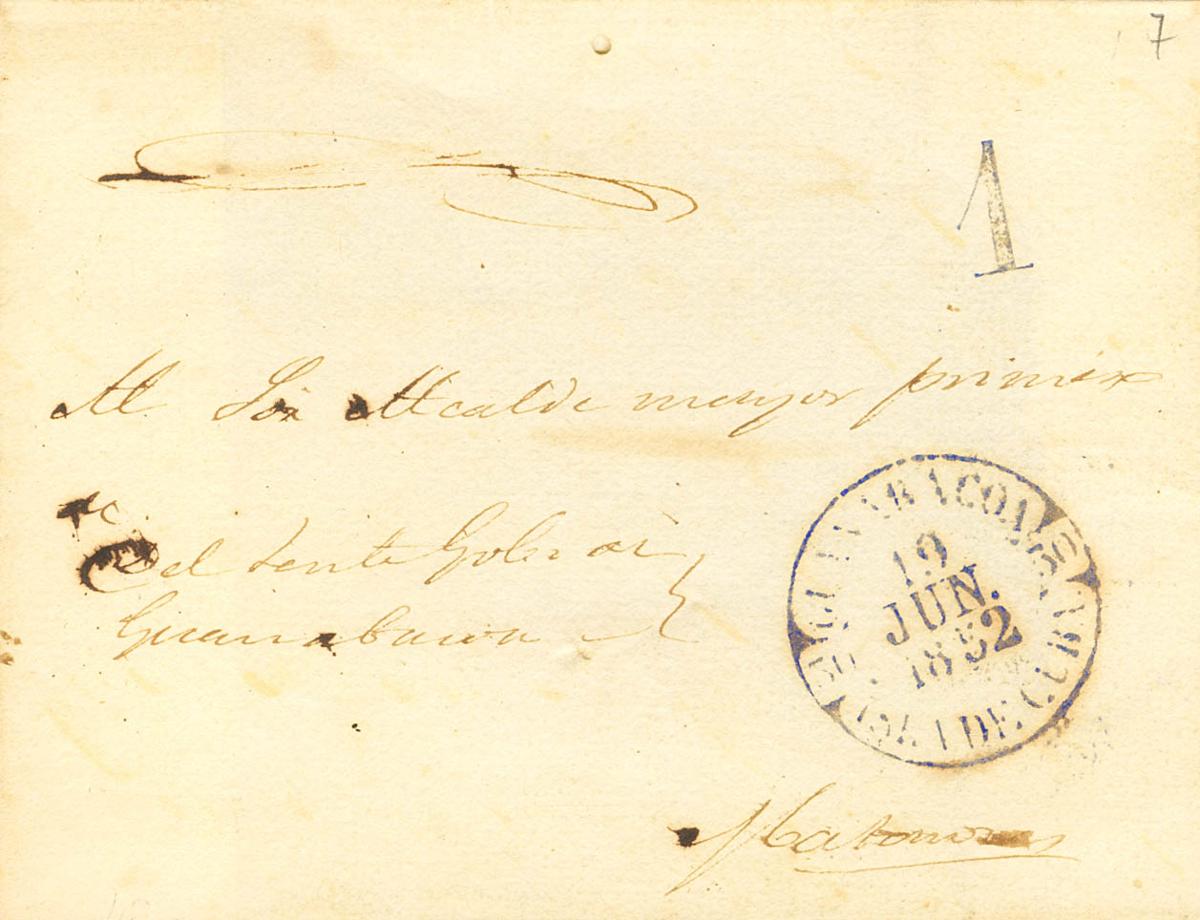 7
1
Al Sōr Alcalde mayor primero
del Tente Gobor de
Guanabacoa
GUANABACOA
19
JUN.
1852
ISLA DE CUBA
Matanzas